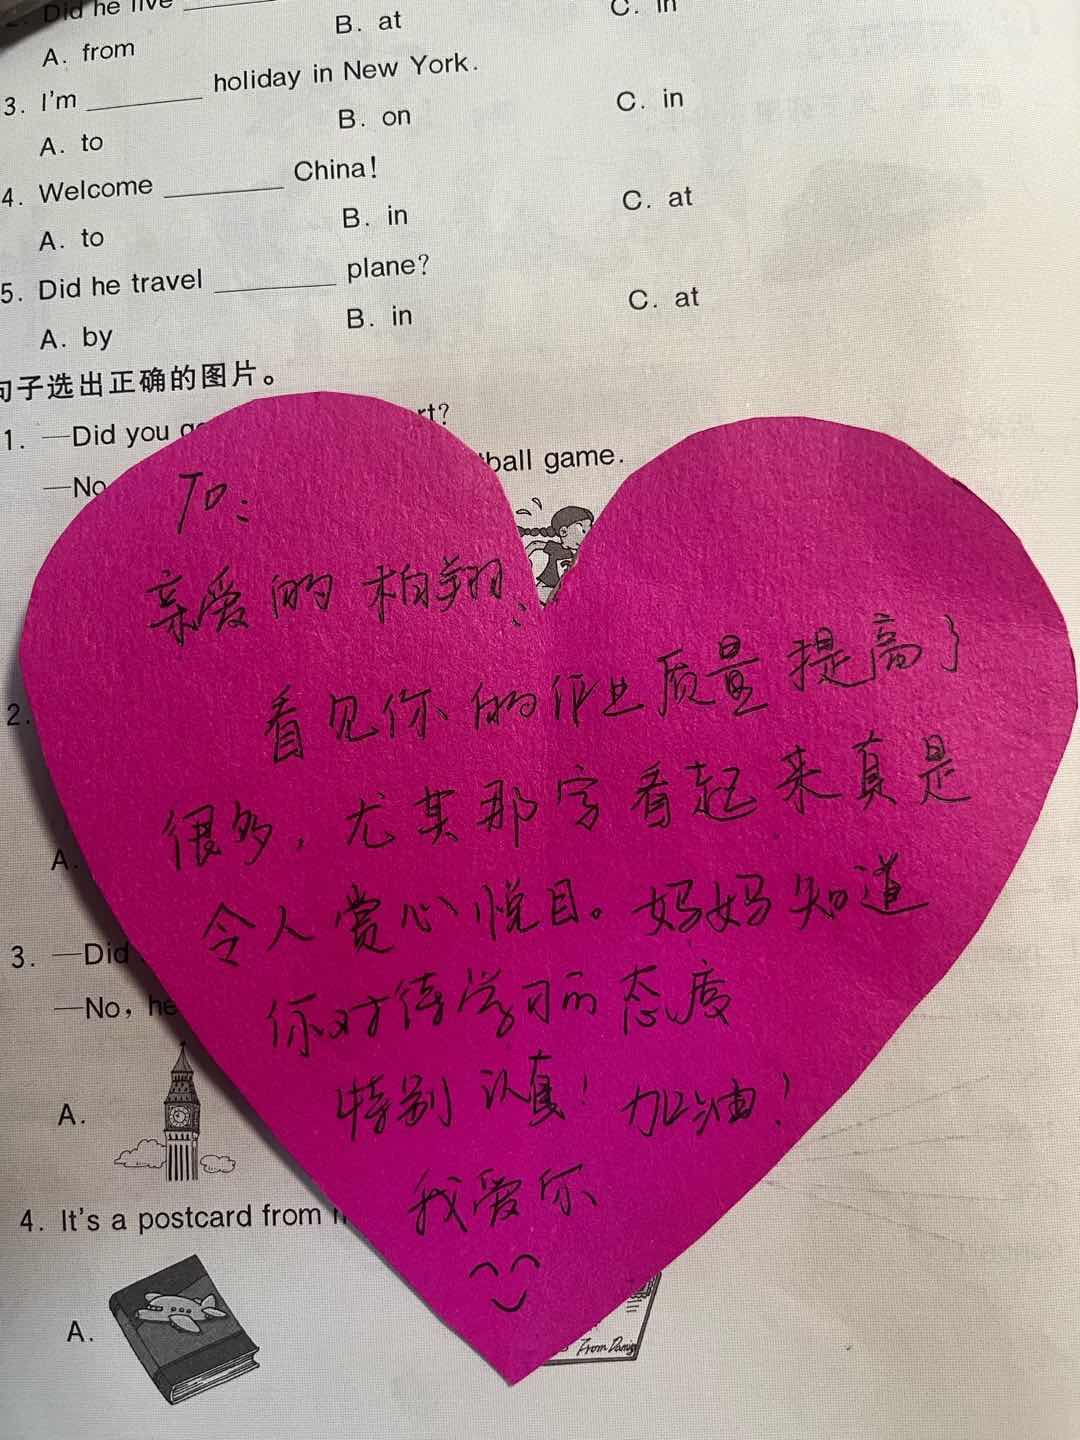 Did he live
A. from B. at C. in
3. I'm ________ holiday in New York.
A. to B. on C. in
4. Welcome ________ China!
A. to B. in C. at
5. Did he travel ________ plane?
A. by B. in C. at
句子选出正确的图片。
1. —Did you
—No ball game.
To:
亲爱的柏翔:
看见你的作业质量提高了
很多,尤其那字看起来真是
令人赏心悦目。妈妈知道
你对待学习的态度
特别认真!加油!
我爱你
2.
A.
3. —Did
—No, he
A.
4. It's a postcard from
A.
From Daming